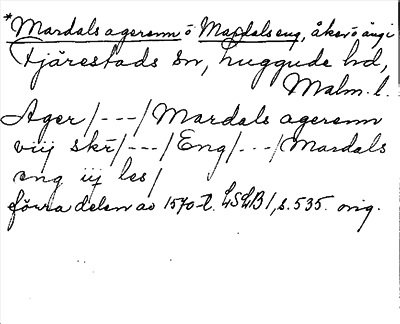 *Mardals agerenn o Mardals eng, åker o äng i
Fjärestads sn, Luggude hd,
Malm. l.
Ager/---/Mardals agerenn
viij skr̄/---/Eng/---/Mardals
eng iij les/
förra delen av 1570-t. LSLB 1, s. 535. orig.